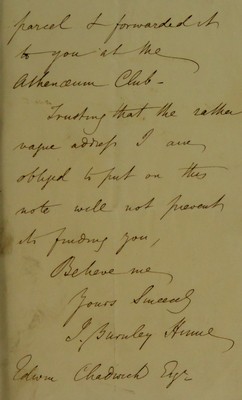 parcel & forwarded it
to you at the
Athenæum Club –
Trusting that the rather
vague address I am
obliged to put on this
note will not prevent
its finding you,
Believe me
Yours Sincerely
J. Burnley Hume
Edwin Chadwick Esqr